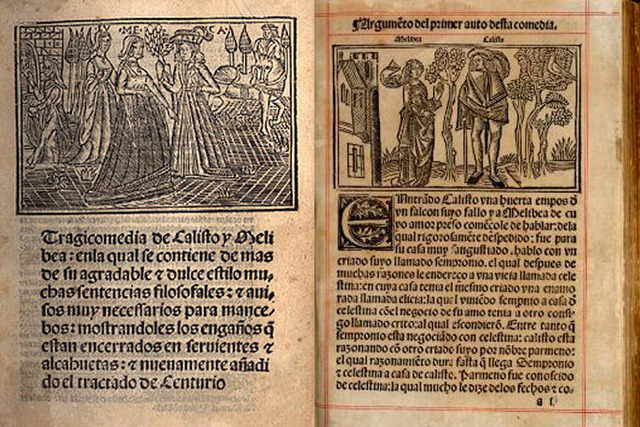 ME A
Tragicomedia de Calisto y Meli
bea: enla qual se contiene de mas
de su agradable & dulce estilo mu-
chas sentencias filosofales: & aui-
sos muy necessarios para mance-
bos: mostrandoles los engaños q̃
estan encerrados en seruientes &
alcahuetas: & nueuamente añadi
do el tractado de Centurio
Argumẽto del primer auto desta comedia.
Melibea Calisto
ENtrãdo Calisto vna huerta empos d̃
vn falcon suyo fallo y a Melibea de cu
yo amor preso comẽcole de hablar: dela
qual rigorosamẽte despedido: fue para
su casa muy sangustiado. hablo con vn
criado suyo llamado sempronio. el qual despues de
muchas razones le endereço a vna vieja llamada cele
stina: en cuya casa tenia el mesmo criado vna enamo
rada llamada elicia: la qual viniẽdo sempronio a casa d̃
celestina cõel negocio de su amo tenia a otro consi-
go llamado crito: al qual escondierõ. Entre tanto q̃
sempronio esta negociado con celestina: calisto esta
razonando cõ otro criado suyo por nõbre parmeno:
el qual razonamiẽto dura fasta q̃ llega Sempronio
e celestina a casa de calisto. Parmeno fue conoscido
de celestina: la qual mucho le dize delos fechos & co-
a i.